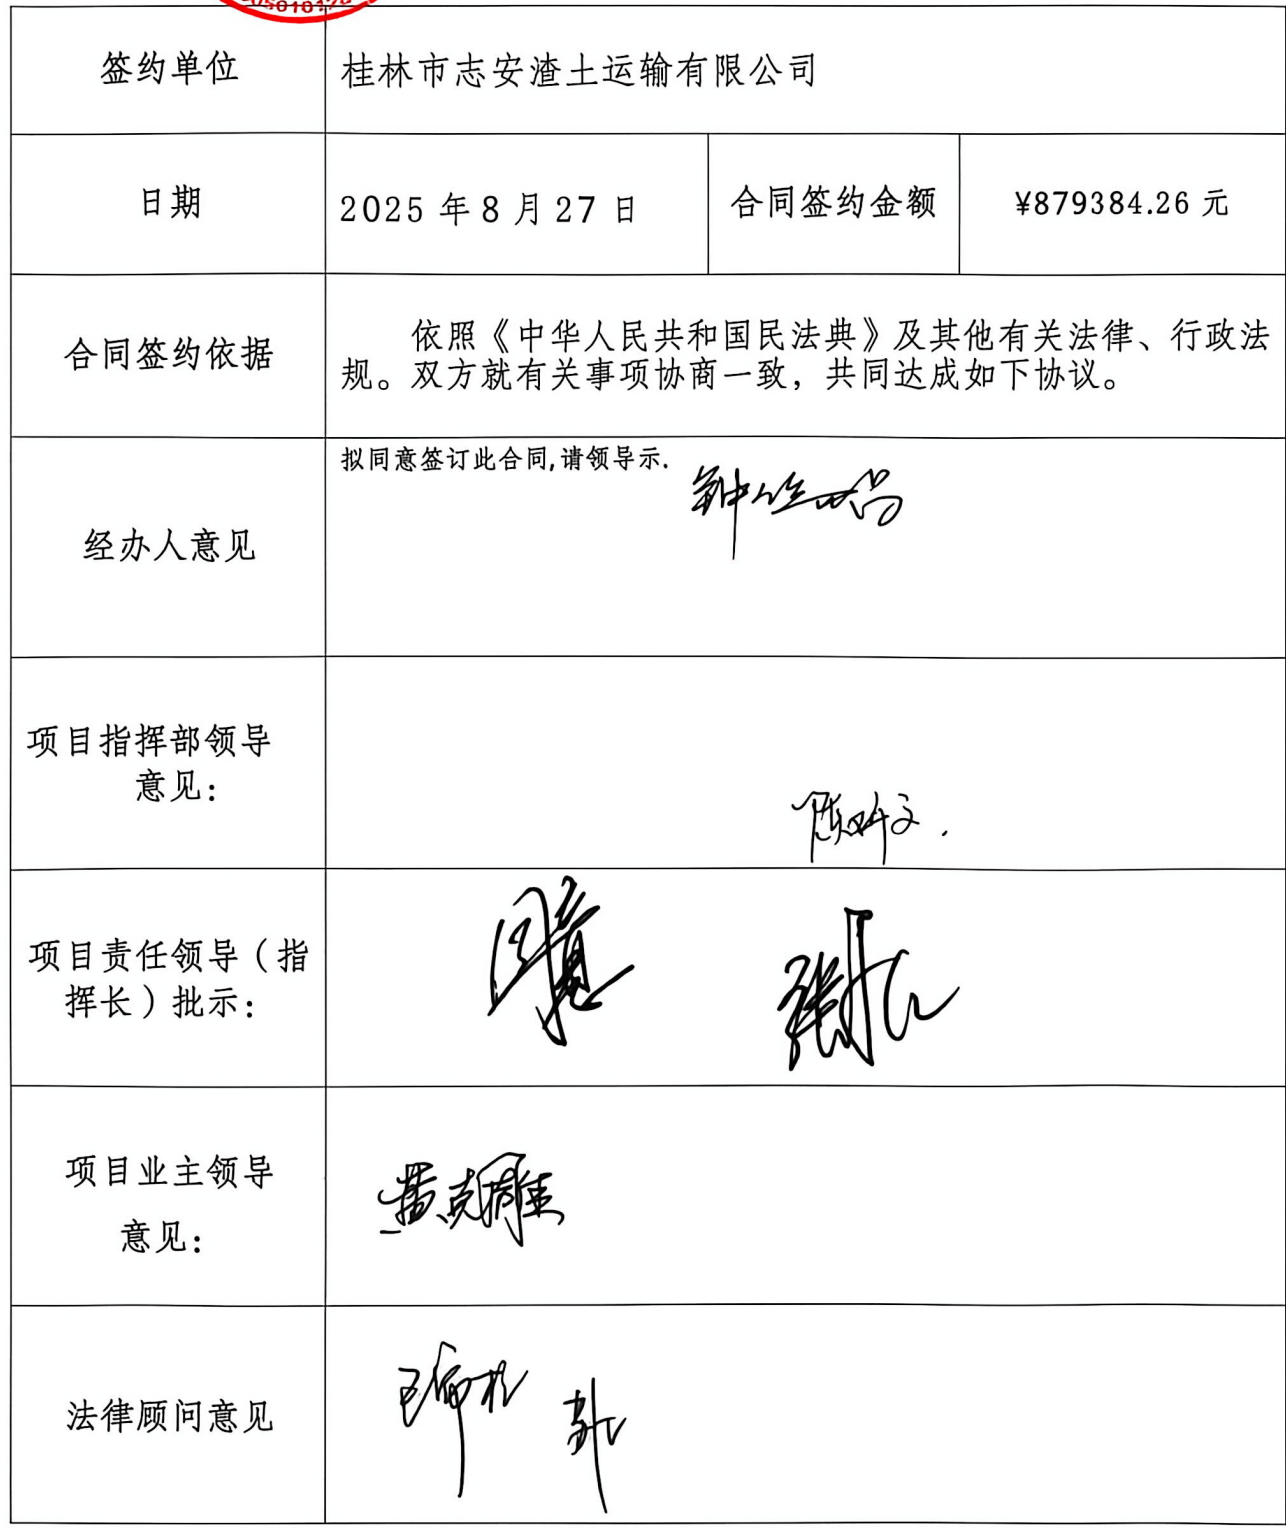 签约单位
桂林市志安渣土运输有限公司
日期
2025 年 8 月 27 日
合同签约金额
¥879384.26 元
合同签约依据
依照《中华人民共和国民法典》及其他有关法律、行政法
规。双方就有关事项协商一致，共同达成如下协议。
拟同意签订此合同,请领导示.
经办人意见
项目指挥部领导
意见：
项目责任领导（指
挥长）批示：
同意
项目业主领导
意见：
法律顾问意见